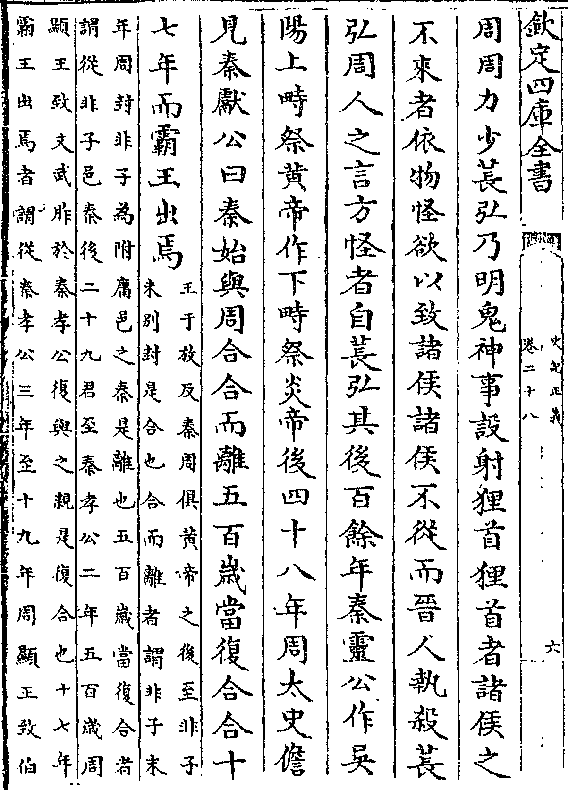 欽定四庫全書
史記正義
卷二十八
六
周周力少萇弘乃明鬼神事設射狸首狸首者諸侯之
不來者依物怪欲以致諸侯諸侯不從而晉人執殺萇
弘周人之言方怪者自萇弘其後百餘年秦靈公作吳
陽上畤祭黃帝作下畤祭炎帝後四十八年周太史儋
見秦獻公曰秦始與周合合而離五百歲當復合合十
七年而霸王出焉
王于放反秦周俱黃帝之後至非子
未別封是合也合而離者謂非子末
年周封非子為附庸邑之秦是離也五百歲當復合者
謂從非子邑秦後二十九君至秦孝公二年五百歲周
顯王致文武胙於秦孝公復與之親是復合也十七年
霸王出焉者謂從秦孝公三年至十九年周顯王致伯